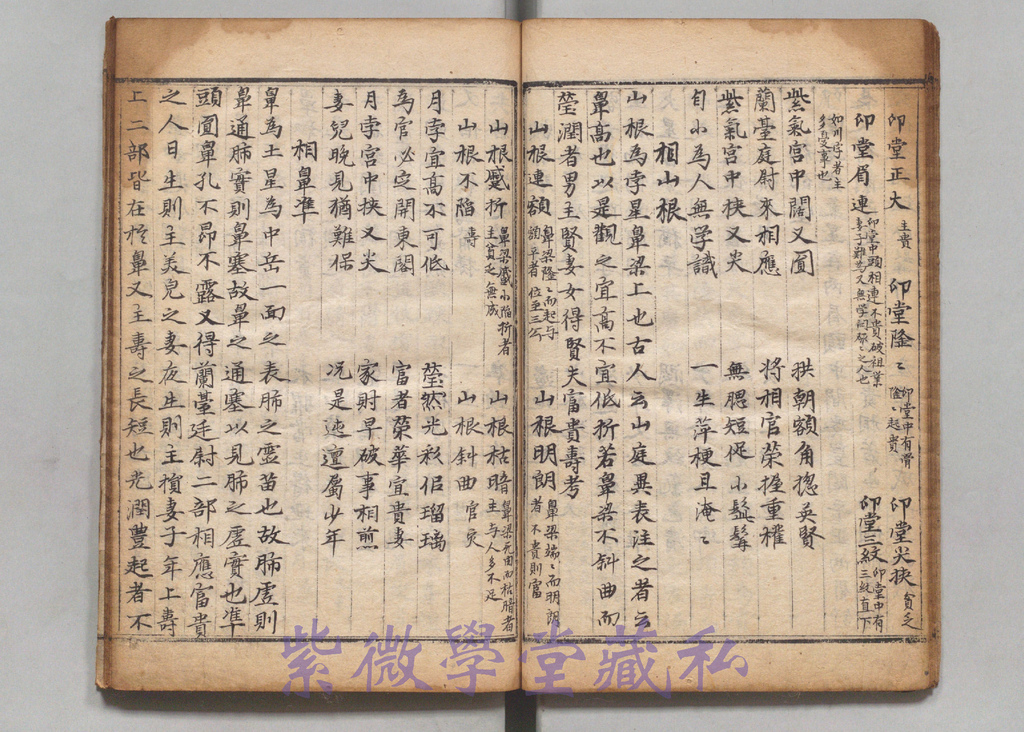 印堂正大 主貴 印堂隆〻 印堂中有骨隆〻起貴 印堂尖狹 貧乏
印堂眉連 印堂中頭相連不貴破祖業妻子難為又無學問祭〻之人也 印堂三紋 印堂中有三紋直下
如川字者主多受事也
紫氣宮中闊又圓 拱朝額角揔英賢
蘭䑓庭尉來相應 將相官榮握重權
紫氣宮中狹又尖 無腮短促小髭髯
自小為人無學識 一生萍梗且淹〻
相山根
山根為孛星鼻梁上也古人云山庭異表注之者云
鼻高也以是觀之宜高不宜低折若鼻梁不斜曲而
瑩潤者男主賢妻女得賢夫富貴壽考
山根連額 鼻梁隆〻而起与額平者位至三公 山根明朗 鼻梁端〻而明朗者不貴則富
山根蹙折 鼻梁蹙小陷折者主貧乏無成 山根枯暗 鼻梁而枯暗者主与人多不足
山根不陷 壽 山根斜曲 官灾
月孛宜高不可低 瑩然光彩佀瑠璃
為官必定開東閣 富者榮華宜貴妻
月孛宮中挾又尖 家財早破事相煎
妻兒晚見猶難保 况是迍邅屬少年
相鼻準
鼻為土星為中岳一面之表肺之靈苗也故肺虛則
鼻通肺實則鼻塞故鼻之通塞以見肺之虛實也準
頭圓鼻孔不昂不露又得蘭䑓廷尉二部相應富貴
之人日生則主美皃之妻夜生則主損妻子年上壽
上二部皆在於鼻又主壽之長短也光潤豊起者不
紫微學堂藏私